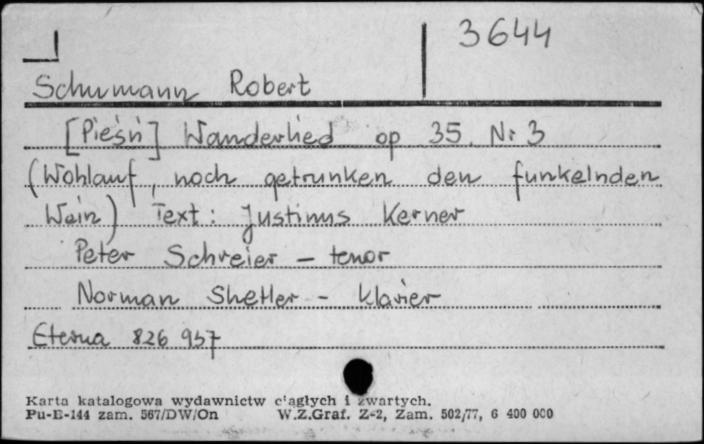 3644
Schumann Robert
[Pieśń] Wanderlied op 35. Nr 3
(Wohlauf, noch getrunken den funkelnden
Wein) Text: Justinus Kerner
Peter Schreier – tenor
Norman Shetler – Klavier
Eterna 826 957
Karta katalogowa wydawnictw ciągłych i zwartych.
Pu-E-144 zam. 567/DW/On W.Z.Graf. Z-2, Zam. 502/77, 6 400 000